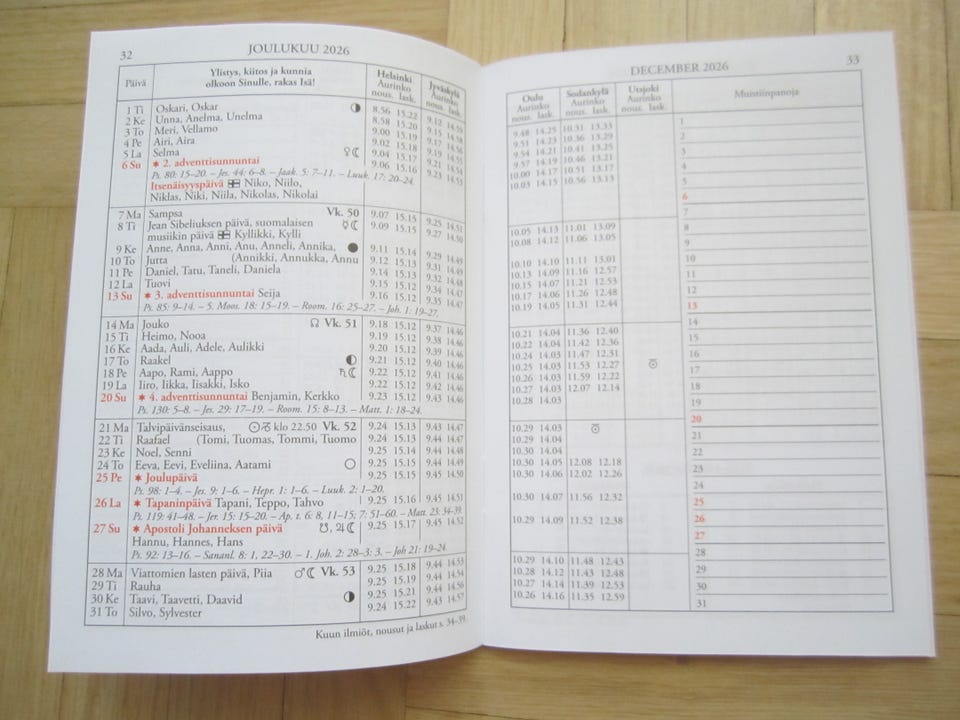 32
JOULUKUU 2026
Päivä
Ylistys, kiitos ja kunnia
olkoon Sinulle, rakas Isä!
Helsinki
Aurinko
nous. lask.
Jyväskylä
Aurinko
nous. lask.
1 Ti Oskari, Oskar 8.56 15.22 9.12 14.59
2 Ke Unna, Anelma, Unelma 8.58 15.20
3 To Meri, Vellamo 9.00 15.19
4 Pe Airi, Aira 9.02 15.18
5 La Selma ♀☾ 9.04 15.17
6 Su ✶ 2. adventtisunnuntai 9.06 15.16
Ps. 80: 15–20. – Jes. 44: 6–8. – Jaak. 5: 7–11. – Luuk. 17: 20–24.
Itsenäisyyspäivä Niko, Niilo,
Niklas, Niki, Niila, Nikolas, Nikolai
7 Ma Sampsa Vk. 50 9.07 15.15 9.25 14.51
8 Ti Jean Sibeliuksen päivä, suomalaisen ☿☾ 9.09 15.15 9.27 14.50
musiikin päivä Kyllikki, Kylli
9 Ke Anne, Anna, Anni, Anu, Anneli, Annika, 9.11 15.14 9.29 14.49
10 To Jutta (Annikki, Annukka, Annu 9.12 15.13 9.31 14.49
11 Pe Daniel, Tatu, Taneli, Daniela 9.14 15.13 9.32 14.48
12 La Tuovi 9.15 15.12 9.34 14.47
13 Su ✶ 3. adventtisunnuntai Seija 9.16 15.12 9.35 14.47
Ps. 85: 9–14. – 5. Moos. 18: 15–19. – Room. 16: 25–27. – Joh. 1: 19–27.
14 Ma Jouko ☊ Vk. 51 9.18 15.12 9.37 14.46
15 Ti Heimo, Nooa 9.19 15.12 9.38 14.46
16 Ke Aada, Auli, Adele, Aulikki 9.20 15.12 9.39 14.46
17 To Raakel 9.21 15.12 9.40 14.46
18 Pe Aapo, Rami, Aappo ♄☾ 9.22 15.12 9.41 14.46
19 La Iiro, Iikka, Iisakki, Isko 9.22 15.12 9.42 14.46
20 Su ✶ 4. adventtisunnuntai Benjamin, Kerkko 9.23 15.12 9.43 14.46
Ps. 130: 5–8. – Jes. 29: 17–19. – Room. 15: 8–13. – Matt. 1: 18–24.
21 Ma Talvipäivänseisaus, klo 22.50 Vk. 52 9.24 15.13 9.43 14.47
22 Ti Raafael (Tomi, Tuomas, Tommi, Tuomo 9.24 15.13 9.44 14.47
23 Ke Noel, Senni 9.25 15.14 9.44 14.48
24 To Eeva, Eevi, Eveliina, Aatami 9.25 15.15 9.44 14.49
25 Pe ✶ Joulupäivä 9.25 15.15 9.45 14.50
Ps. 98: 1–4. – Jes. 9: 1–6. – Hepr. 1: 1–6. – Luuk. 2: 1–20.
26 La ✶ Tapaninpäivä Tapani, Teppo, Tahvo 9.25 15.16 9.45 14.51
Ps. 119: 41–48. – Jer. 15: 15–20. – Ap. t. 6: 8, 11–15; 7: 51–60. – Matt. 23: 34–39.
27 Su ✶ Apostoli Johanneksen päivä ☋, ♃☾ 9.25 15.17 9.45 14.52
Hannu, Hannes, Hans
Ps. 92: 13–16. – Sananl. 8: 1, 22–30. – 1. Joh. 2: 28–3: 3. – Joh 21: 19–24.
28 Ma Viattomien lasten päivä, Piia ♂☾ Vk. 53 9.25 15.18 9.44 14.53
29 Ti Rauha 9.25 15.19 9.44 14.54
30 Ke Taavi, Taavetti, Daavid 9.25 15.21 9.44 14.56
31 To Silvo, Sylvester 9.24 15.22 9.43 14.57
Kuun ilmiöt, nousut ja laskut s. 34–39
DECEMBER 2026
33
Oulu
Aurinko
nous. lask.
Sodankylä
Aurinko
nous. lask.
Utsjoki
Aurinko
nous. lask.
Muistiinpanoja
9.48 14.25 10.31 13.33 1
9.51 14.23 10.36 13.29 2
9.54 14.21 10.41 13.25 3
9.57 14.19 10.46 13.21 4
10.00 14.17 10.51 13.17 5
10.03 14.15 10.56 13.13 6
10.05 14.13 11.01 13.09 7
10.08 14.12 11.06 13.05 8
10.10 14.10 11.11 13.01 9
10.13 14.09 11.16 12.57 10
10.15 14.07 11.21 12.53 11
10.17 14.06 11.26 12.48 12
10.19 14.05 11.31 12.44 13
10.21 14.04 11.36 12.40 14
10.22 14.04 11.42 12.36 15
10.24 14.03 11.47 12.31 16
10.25 14.03 11.53 12.27 17
10.26 14.03 11.59 12.22 18
10.27 14.03 12.07 12.14 19
10.28 14.03 20
10.29 14.03 21
10.29 14.04 22
10.30 14.04 23
10.30 14.05 12.08 12.18 24
10.30 14.06 12.02 12.26 25
10.30 14.07 11.56 12.32 26
10.29 14.09 11.52 12.38 27
10.29 14.10 11.48 12.43 28
10.28 14.12 11.43 12.48 29
10.27 14.14 11.39 12.53 30
10.26 14.16 11.35 12.59 31